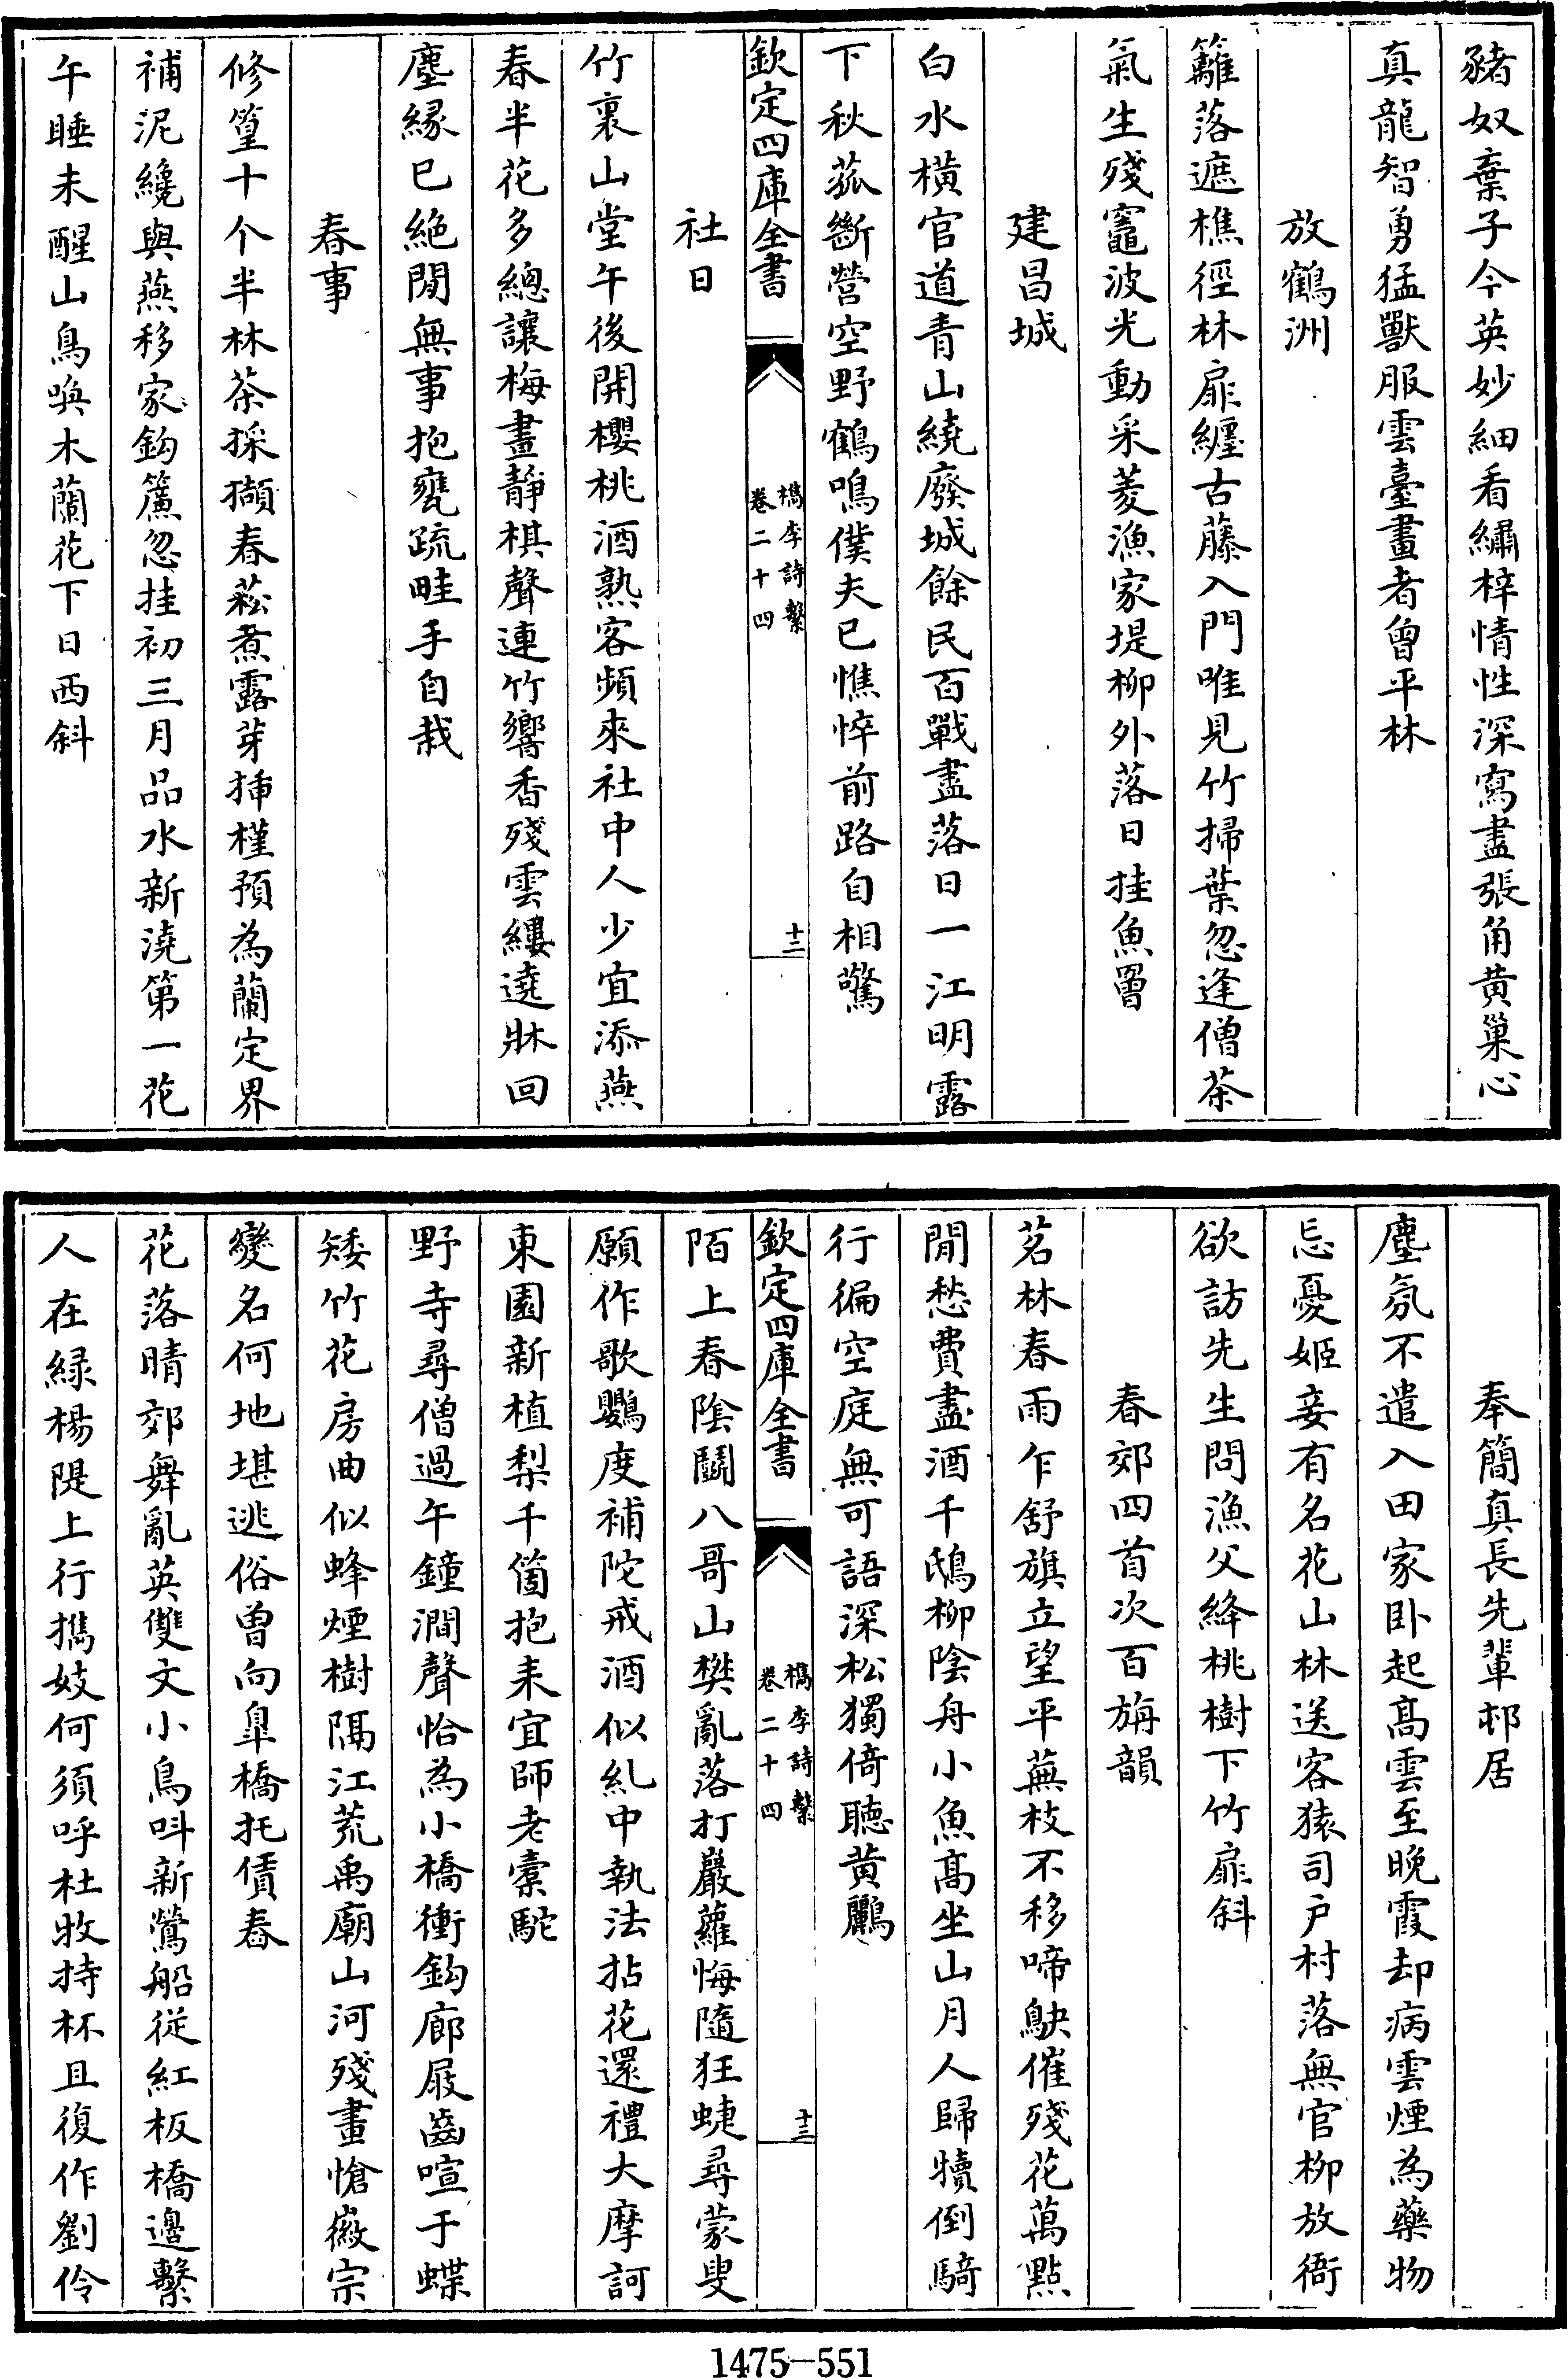 豬奴棄子今英妙細看繡梓情性深寫盡張角黄巢心
真龍智勇猛獸服雲臺畫者曾平林
放鶴洲
籬落遮樵徑林扉纒古藤入門唯見竹掃葉忽逢僧茶
氣生殘竈波光動采菱漁家堤柳外落日挂魚罾
建昌城
白水橫官道青山繞廢城餘民百戰盡落日一江明露
下秋菰斷營空野鶴鳴僕夫已憔悴前路自相驚
欽定四庫全書
檇李詩繫
卷二十四
十二
社日
竹裏山堂午後開櫻桃酒熟客頻來社中人少宜添燕
春半花多總讓梅晝靜棋聲連竹響香殘雲縷遶牀回
塵緣已絶閒無事抱甕疏畦手自栽
春事
修篁十个半林茶採擷春菘煮露芽揷槿預為蘭定界
補泥纔與燕移家鈎簾忽挂初三月品水新澆第一花
午睡未醒山鳥喚木蘭花下日西斜
奉簡真長先輩邨居
塵氛不遣入田家卧起髙雲至晚霞却病雲煙為藥物
忘憂姬妾有名花山林送客猿司户村落無官柳放衙
欲訪先生問漁父絳桃樹下竹扉斜
春郊四首次百旃韻
茗林春雨乍舒旗立望平蕪枝不移啼鴃催殘花萬點
閒愁費盡酒千鴟柳陰舟小魚髙坐山月人歸犢倒騎
行徧空庭無可語深松獨倚聽黄鸝
欽定四庫全書
檇李詩繫
卷二十四
十三
陌上春隂鬭八哥山樊亂落打巖蘿悔隨狂蜨尋蒙叟
願作歌鸚度補陀戒酒似糺中執法拈花還禮大摩訶
東園新植梨千箇抱耒宜師老橐駝
野寺尋僧過午鐘澗聲恰為小橋衝鈎廊屐齒喧于蝶
矮竹花房曲似蜂煙樹隔江荒禹廟山河殘畫愴徽宗
變名何地堪逃俗曽向臯橋托賃舂
花落晴郊舞亂英雙文小鳥呌新鶯船従紅板橋邊繫
人在緑楊隄上行擕妓何須呼杜牧持杯且復作劉伶
1475—551